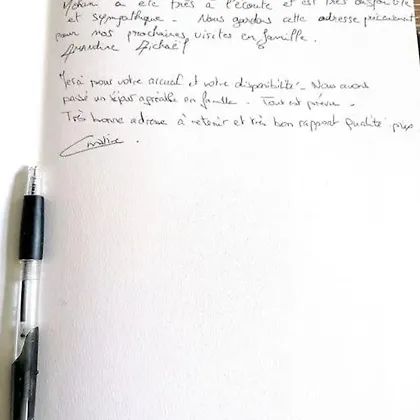 a été très à l'écoute et est très disponible
et sympathique. Nous gardons cette adresse précieusement
pour nos prochaines visites en famille.
Merci pour votre accueil et votre disponibilité. Nous avons
passé un séjour agréable en famille. Tout est prévu.
Très bonne adresse à retenir et très bon rapport qualité prix